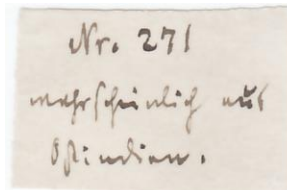 Nr. 271
wahrscheinlich aus
Ostindien.